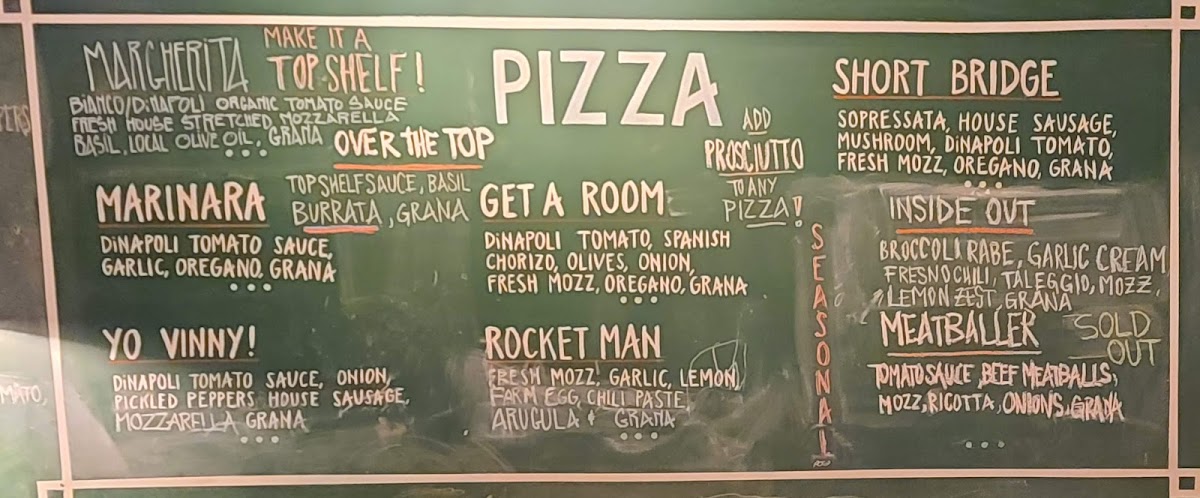 PIZZA
MARGHERITA
MAKE IT A
TOP SHELF!
BIANCO/DINAPOLI ORGANIC TOMATO SAUCE
FRESH HOUSE STRETCHED MOZZARELLA
BASIL, LOCAL OLIVE OIL, GRANA
OVER THE TOP
TOP SHELF SAUCE, BASIL
BURRATA, GRANA
MARINARA
DINAPOLI TOMATO SAUCE,
GARLIC, OREGANO, GRANA
YO VINNY!
DINAPOLI TOMATO SAUCE, ONION,
PICKLED PEPPERS, HOUSE SAUSAGE,
MOZZARELLA GRANA
GET A ROOM
DINAPOLI TOMATO, SPANISH
CHORIZO, OLIVES, ONION,
FRESH MOZZ, OREGANO, GRANA
ROCKET MAN
FRESH MOZZ, GARLIC, LEMON,
FARM EGG, CHILI PASTE
ARUGULA & GRANA
ADD
PROSCIUTTO
TO ANY
PIZZA!
SHORT BRIDGE
SOPRESSATA, HOUSE SAUSAGE,
MUSHROOM, DINAPOLI TOMATO,
FRESH MOZZ, OREGANO, GRANA
SEASONAL
INSIDE OUT
BROCCOLI RABE, GARLIC CREAM
FRESNO CHILI, TALEGGIO, MOZZ,
LEMON ZEST, GRANA
MEATBALLER
SOLD
OUT
TOMATO SAUCE, BEEF MEATBALLS,
MOZZ, RICOTTA, ONIONS, GRANA